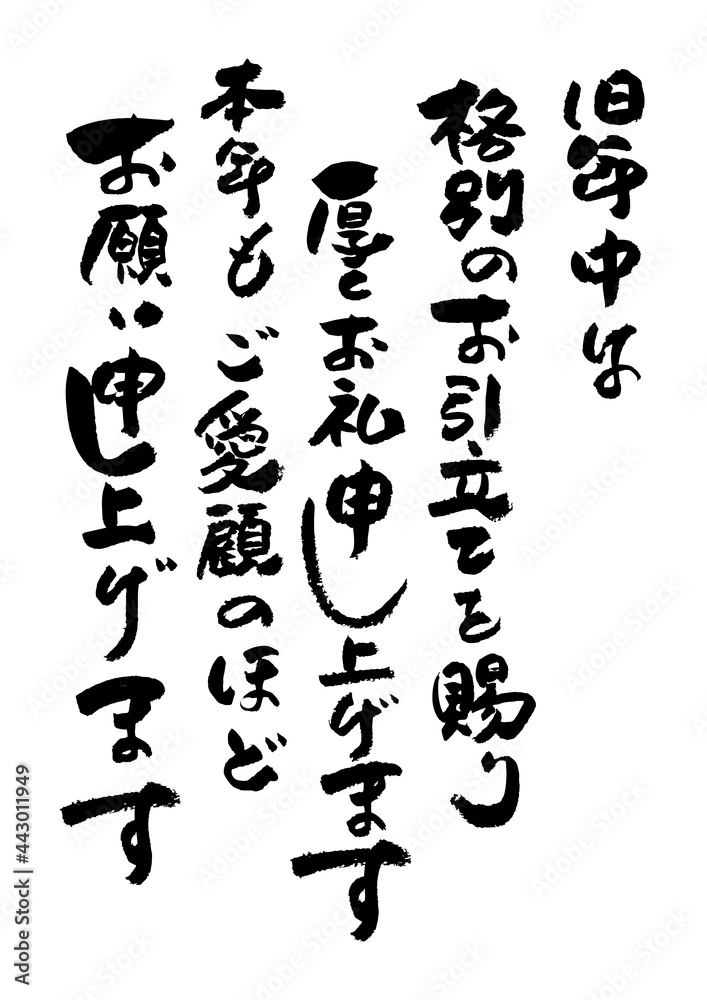 旧年中は
格別のお引立てを賜り
厚くお礼申し上げます
本年もご愛顧のほど
お願い申し上げます
Adobe Stock | #443011949